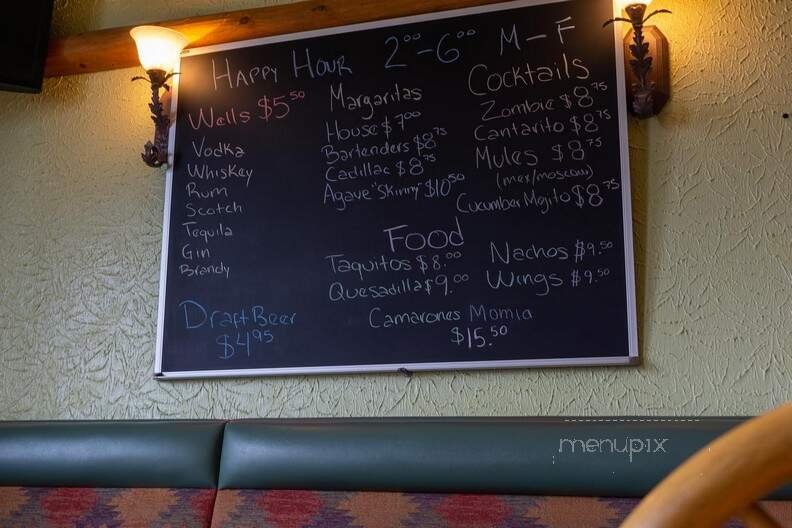 Happy Hour 2⁰⁰-6⁰⁰ M-F
Wells $5⁵⁰
Vodka
Whiskey
Rum
Scotch
Tequila
Gin
Brandy
Draft Beer
$4⁹⁵
Margaritas
House $7⁰⁰
Bartenders $8⁷⁵
Cadillac $8⁷⁵
Agave "Skinny" $10⁵⁰
Cocktails
Zombie $8⁷⁵
Cantarito $8⁷⁵
Mules $8⁷⁵
(mex/moscow)
Cucumber Mojito $8⁷⁵
Food
Taquitos $8.⁰⁰
Quesadilla $9.⁰⁰
Nachos $9.⁵⁰
Wings $9.⁵⁰
Camarones Momia
$15.⁵⁰
menupix